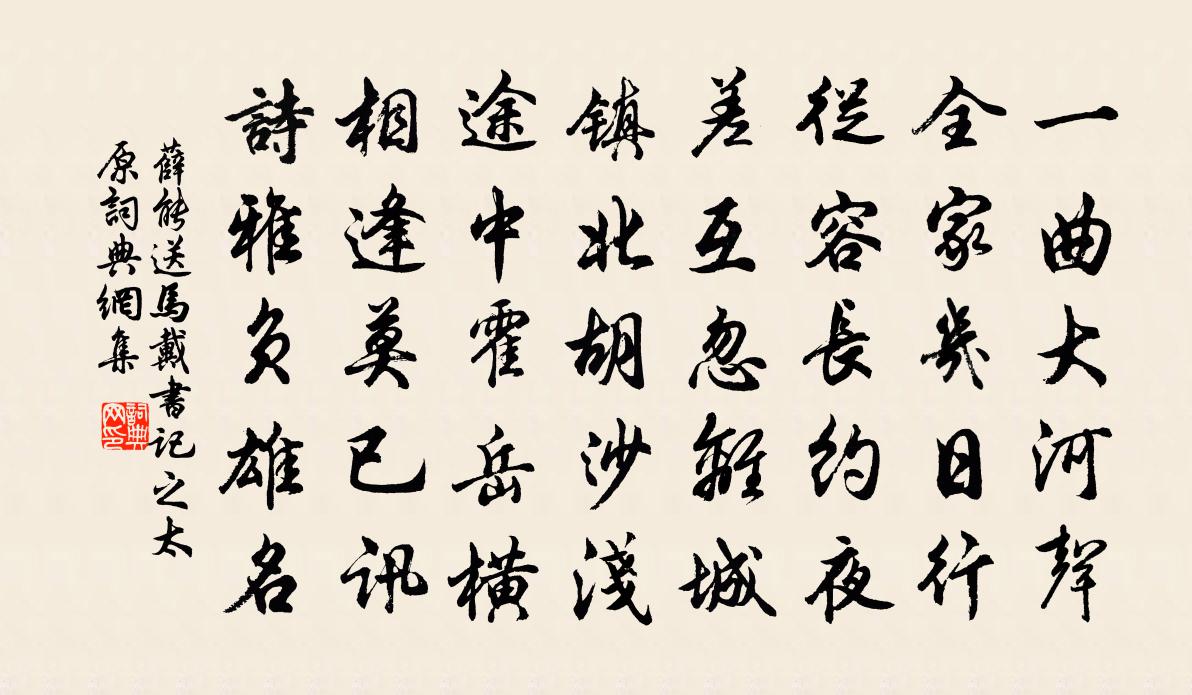 一曲大河聲
全家幾日行
從容長約夜
差互忽離城
镇北胡沙淺
途中霍岳橫
相逢莫已訊
詩雅負雄名
薛能送馬戴書記之太
原詞典網集
詞典
网印